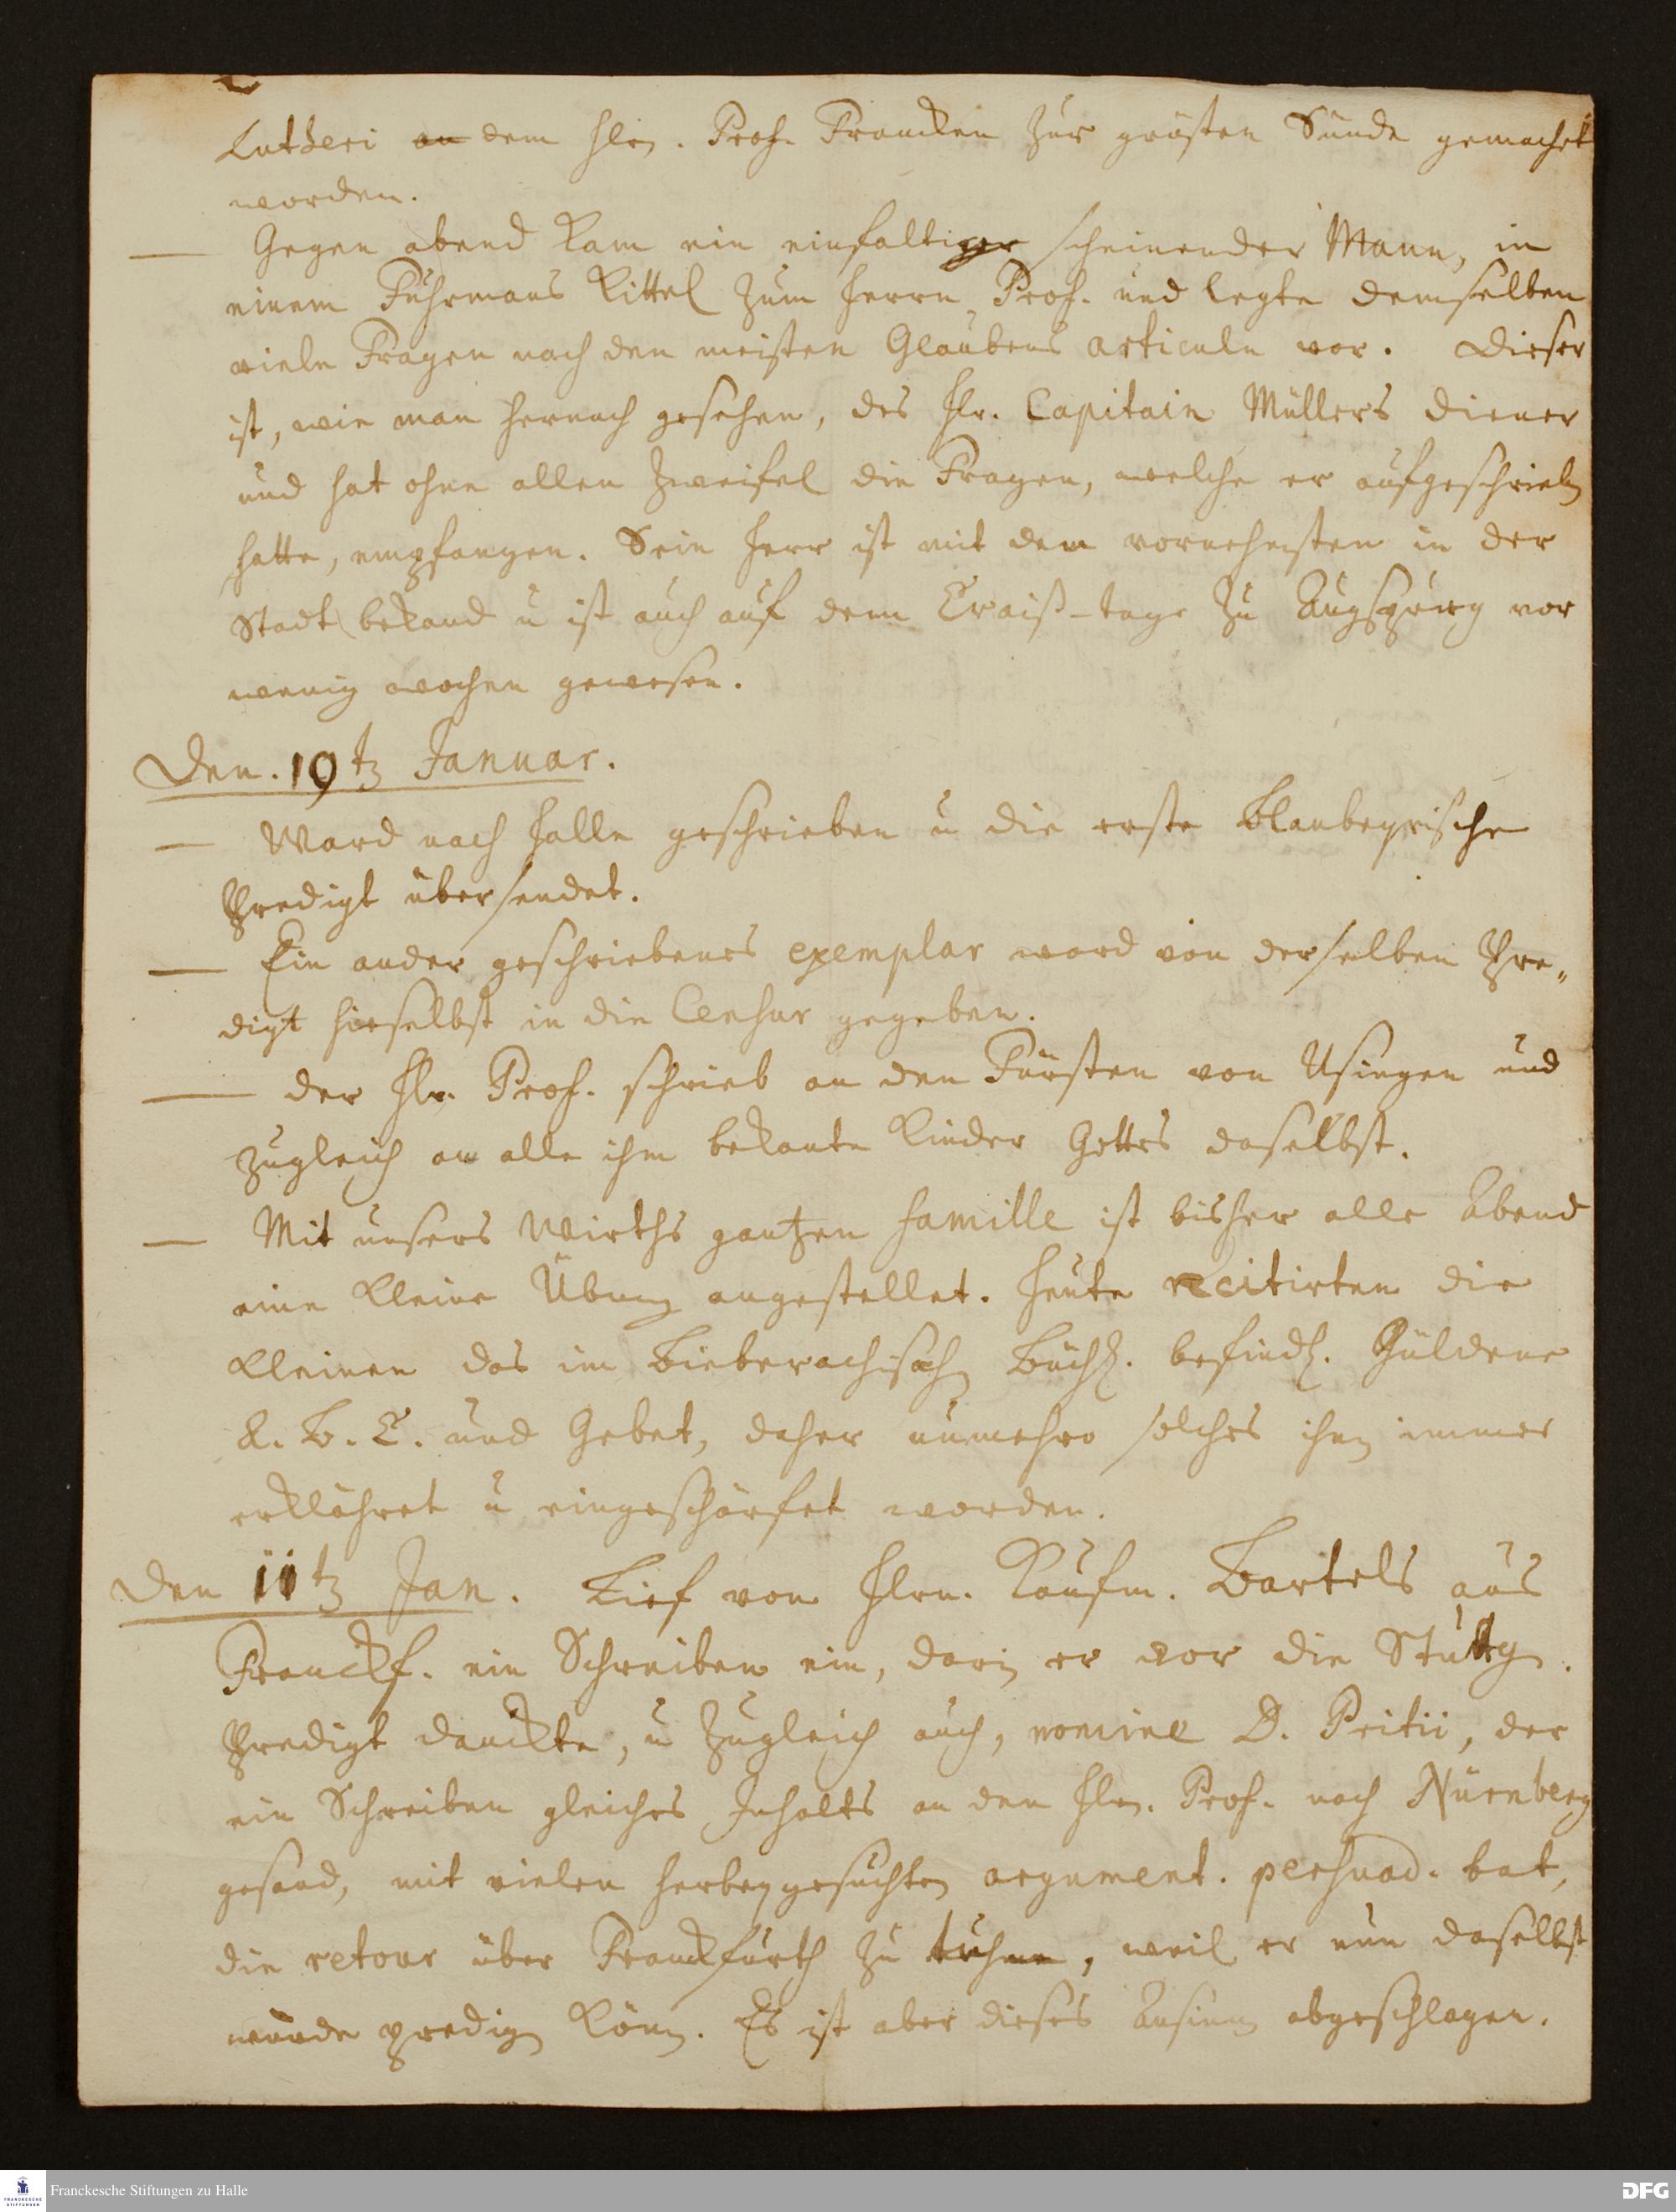 Lutheri an dem Hlen. Prof. Francken zur grösten Sünde gemachet
worden.
— Gegen abend kam ein einfaltiger scheinender Mann, in
einem Fuhrmans Kittel zum Herrn Prof. und legte demselben
viele Fragen nach den meisten Glaubens articuln vor. Dieser
ist, wie man hernach gesehen, des Hlr. Capitain Müllers Diener
und hat ohne allen Zweifel die Fragen, welche er aufgeschrieben
hatte, empfangen. Sein Herr ist mit den vornehmsten in der
Stadt bekand u ist auch auf dem Craiß-tage zu Augspurg vor
wenig wochen gewesen.
Den. 10t Januar.
— Ward nach Halle geschrieben u die erste Blaubeyrische
Predigt übersendet.
— Ein ander geschriebenes exemplar ward von derselben Pre„
digt hieselbst in die Censur gegeben.
— der Hlr. Prof. schrieb an den Fürsten von Usingen und
zugleich an alle ihm bekante Kinder Gottes daselbst.
— Mit unsers Wirths gantzen famille ist bisher alle Abend
eine kleine Übung angestellet. Heute recitirten die
kleinen das im Bieberachischen Büchl. befindl. Güldene
A. B. C. und Gebet, daher nunmehro solches ihnen immer
erklähret u eingeschärfet worden.
Den 11t Jan. Lief von Hlrn. Kaufm. Bartels aus
Franckf. ein Schreiben ein, darin er vor die Stuttg.
Predigt danckte, u zugleich auch, nomine D. Pritii, der
ein Schreiben gleiches Inhalts an den Hlen. Prof. nach Nürnberg
gesand, mit vielen herbeygesuchten argument. persuad. bat,
die retour über Franckfurth zu tuhn, weil er nun daselbst
würde predigen können. Es ist aber dieses Ansinnen abgeschlagen.
Franckesche Stiftungen zu Halle
DFG